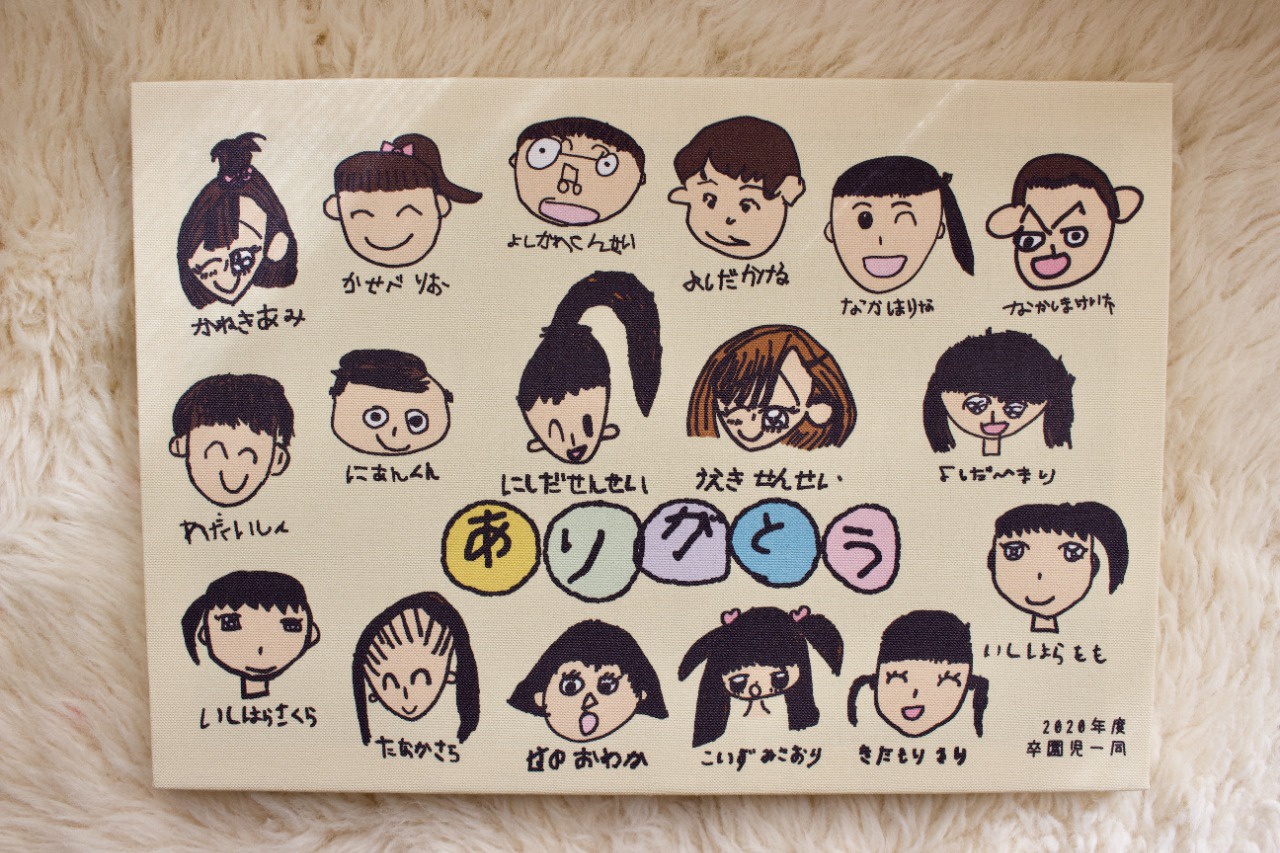 かねきあみ
かせべ りお
よしかわくんせい
よしだかける
なかはりな
なかしまけいた
わだいしん
にあんくん
にしだせんせい
うえき せんせい
よしだ まり
ありがとう
いしはらさくら
たなかさら
せの おわか
こいずみこおり
きたもり まり
いしはら もも
2020年度
卒園児一同